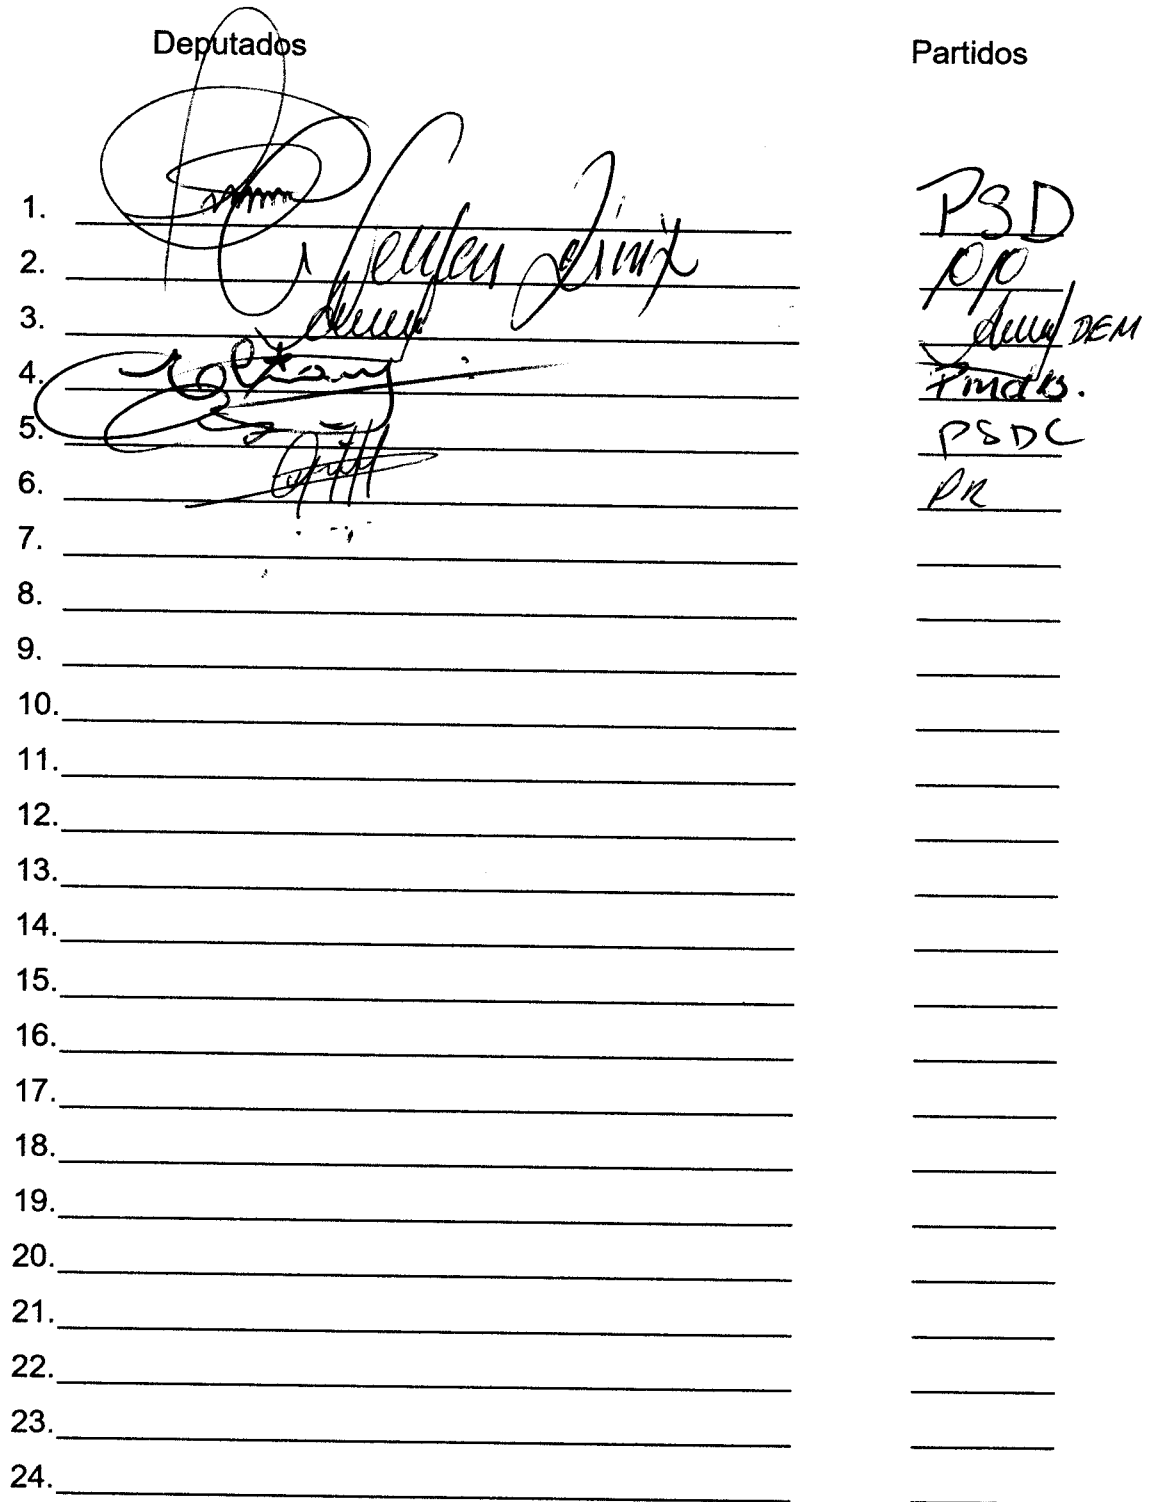 Deputados Partidos
1. PSD
2. PP
3. DEM
4. Pmdb.
5. PSDC
6. PR
7.
8.
9.
10.
11.
12.
13.
14.
15.
16.
17.
18.
19.
20.
21.
22.
23.
24.